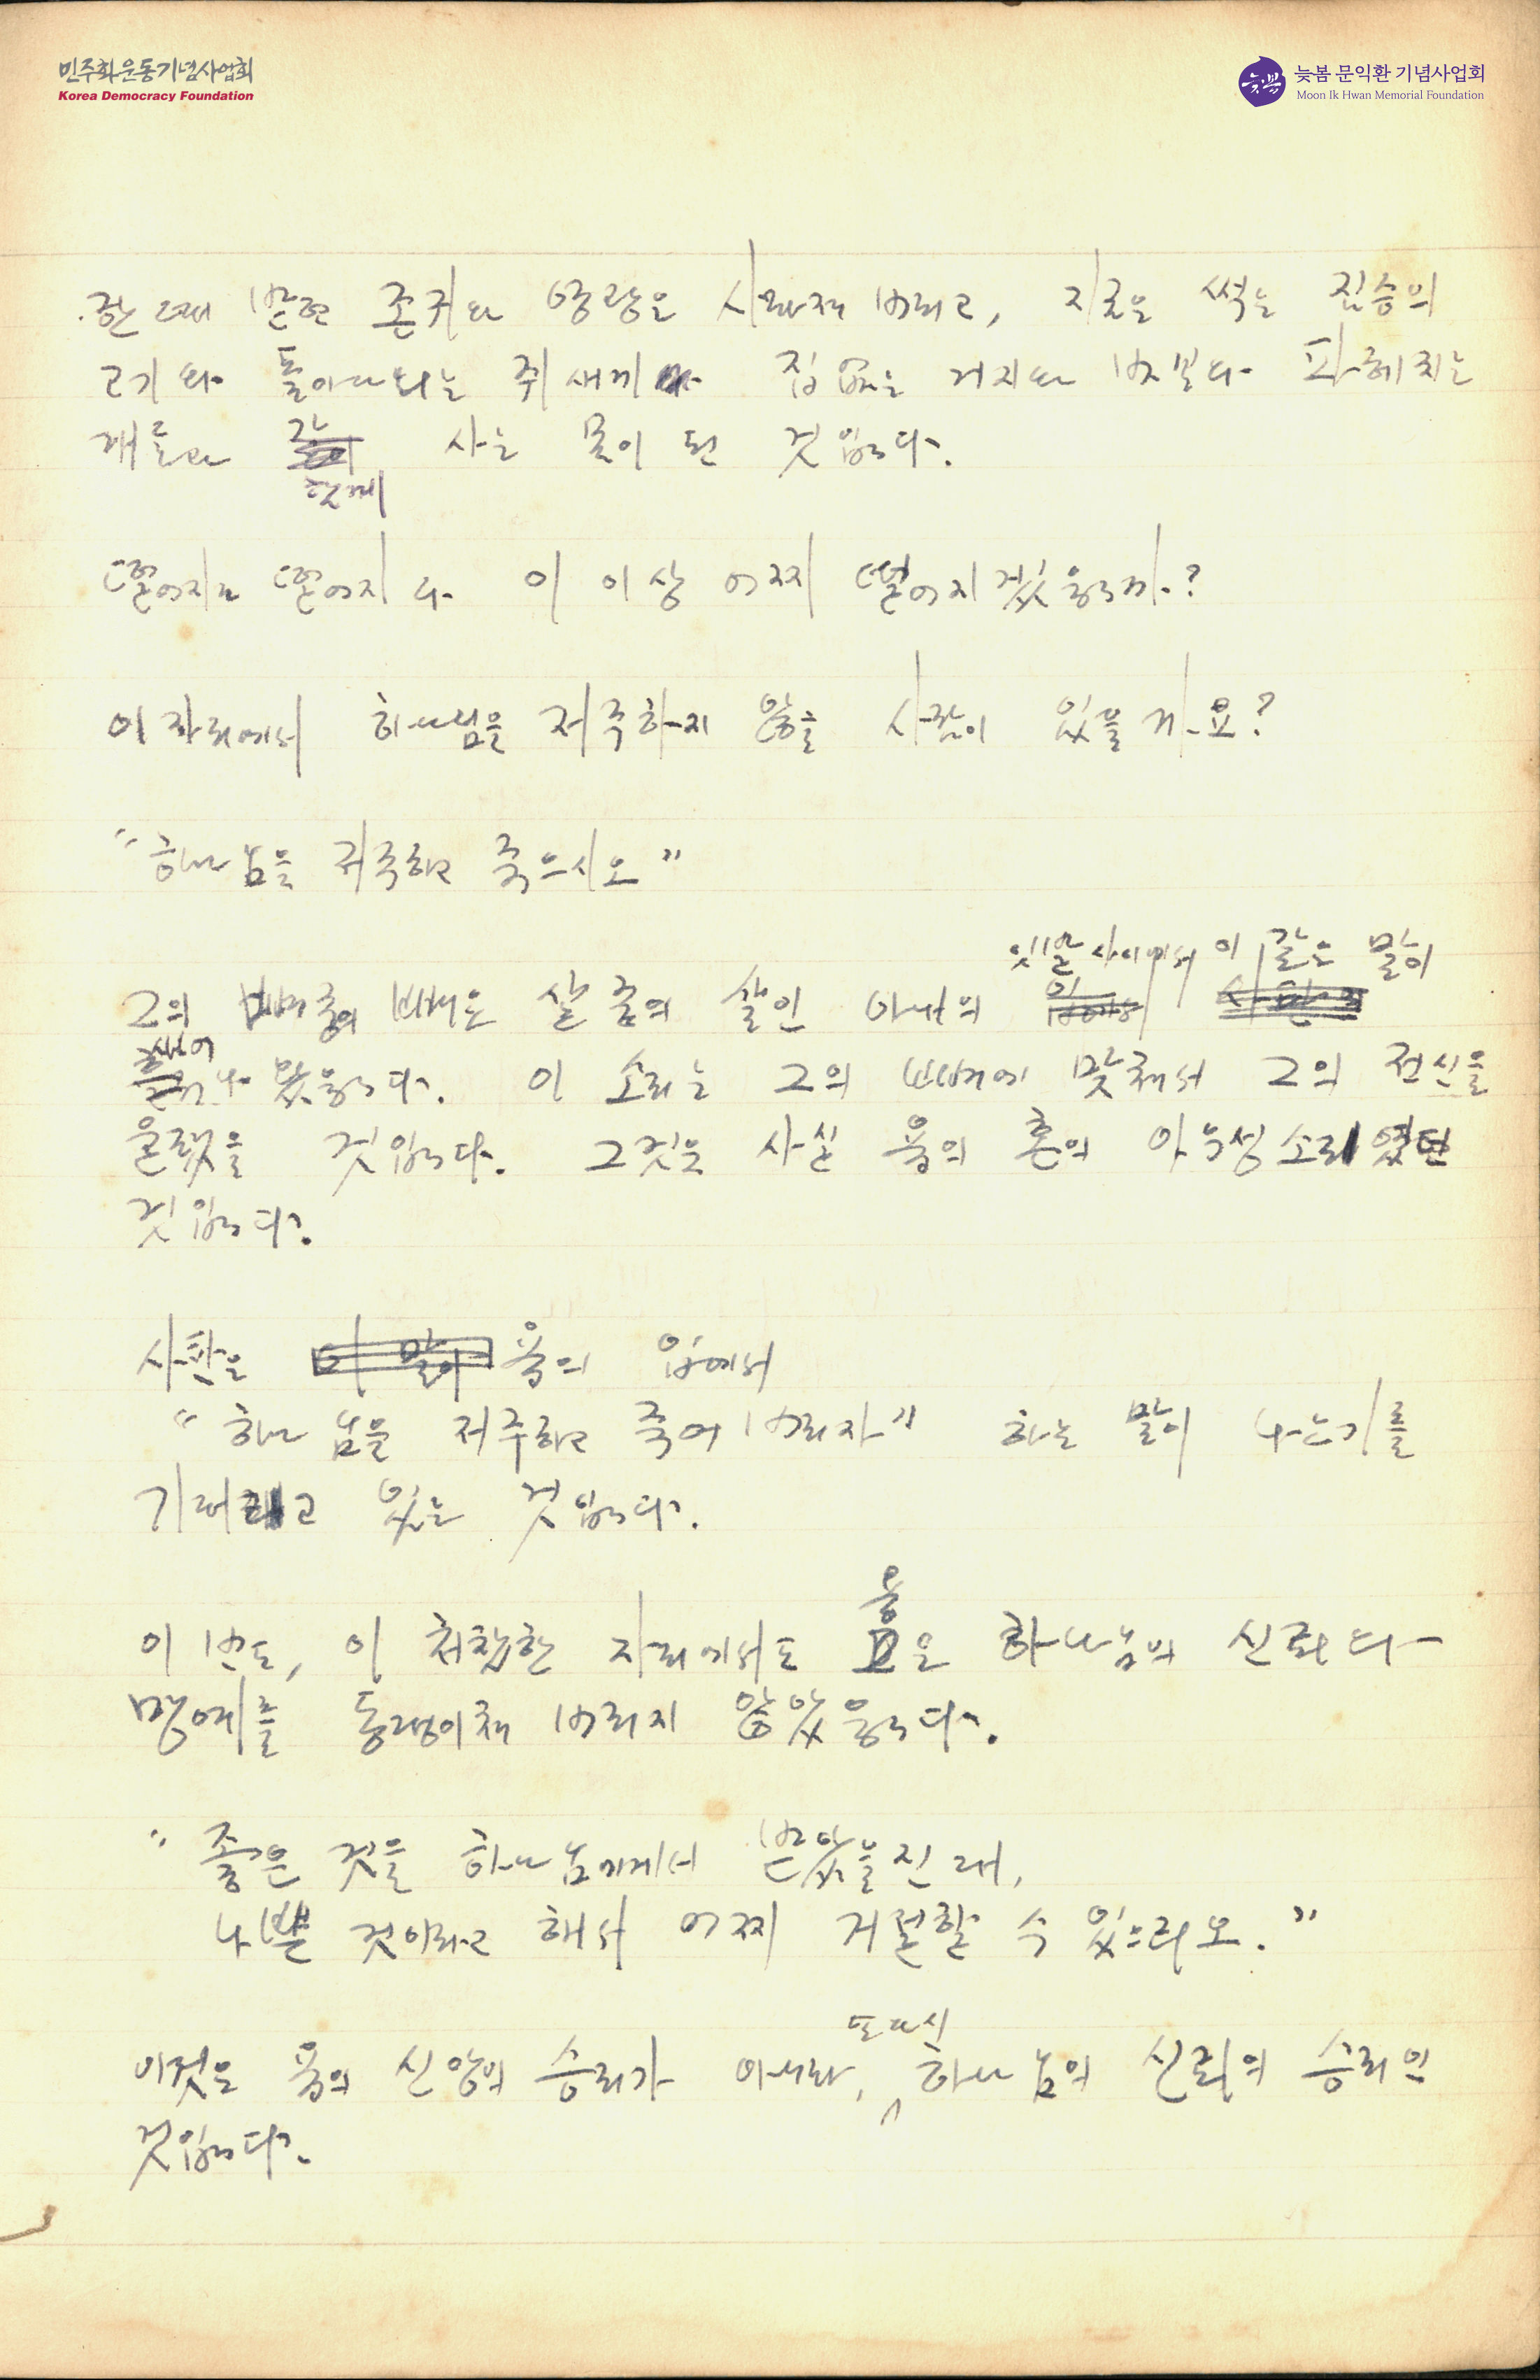 민주화운동기념사업회
Korea Democracy Foundation
늦봄 문익환 기념사업회
Moon Ik Hwan Memorial Foundation
한 때 받던 존귀와 영광은 사라져 버리고, 지금은 썩는 짐승의
고기와 돌아다니는 쥐새끼와 집없는 거지와
개들과 함께 사는 몸이 된 것입니다.
떨어지고 떨어지다 이 이상 어찌 떨어지겠읍니까?
이 자리에서 하나님을 저주하지 않을 사람이 있을까요?
"하나님을 저주하고 죽으시오"
잇발 사이에서 이 같은 말이
그의 뼈 중의 뼈요 살 중의 살인 아내의
새어 나왔읍니다. 이 소리는 그의 뼈에 맞쳐서 그의 전신을
울렸을 것입니다. 그것은 사실 욥의 혼의 아우성 소리였던
것입니다.
사탄은 욥의 입에서
"하나님을 저주하고 죽어 버리자" 하는 말이 나온기를
기다리고 있는 것입니다.
이 번도, 이 처참한 자리에서도 욥은 하나님의 신뢰다
멍에를 동댕이쳐 버리지 않았읍니다.
"좋은 것을 하나님에게서 받았을진대,
나쁠 것이라고 해서 어찌 거절할 수 있으리오."
또다시
이것은 욥의 신앙의 승리가 아니라, 하나님의 신뢰의 승리인
것입니다.